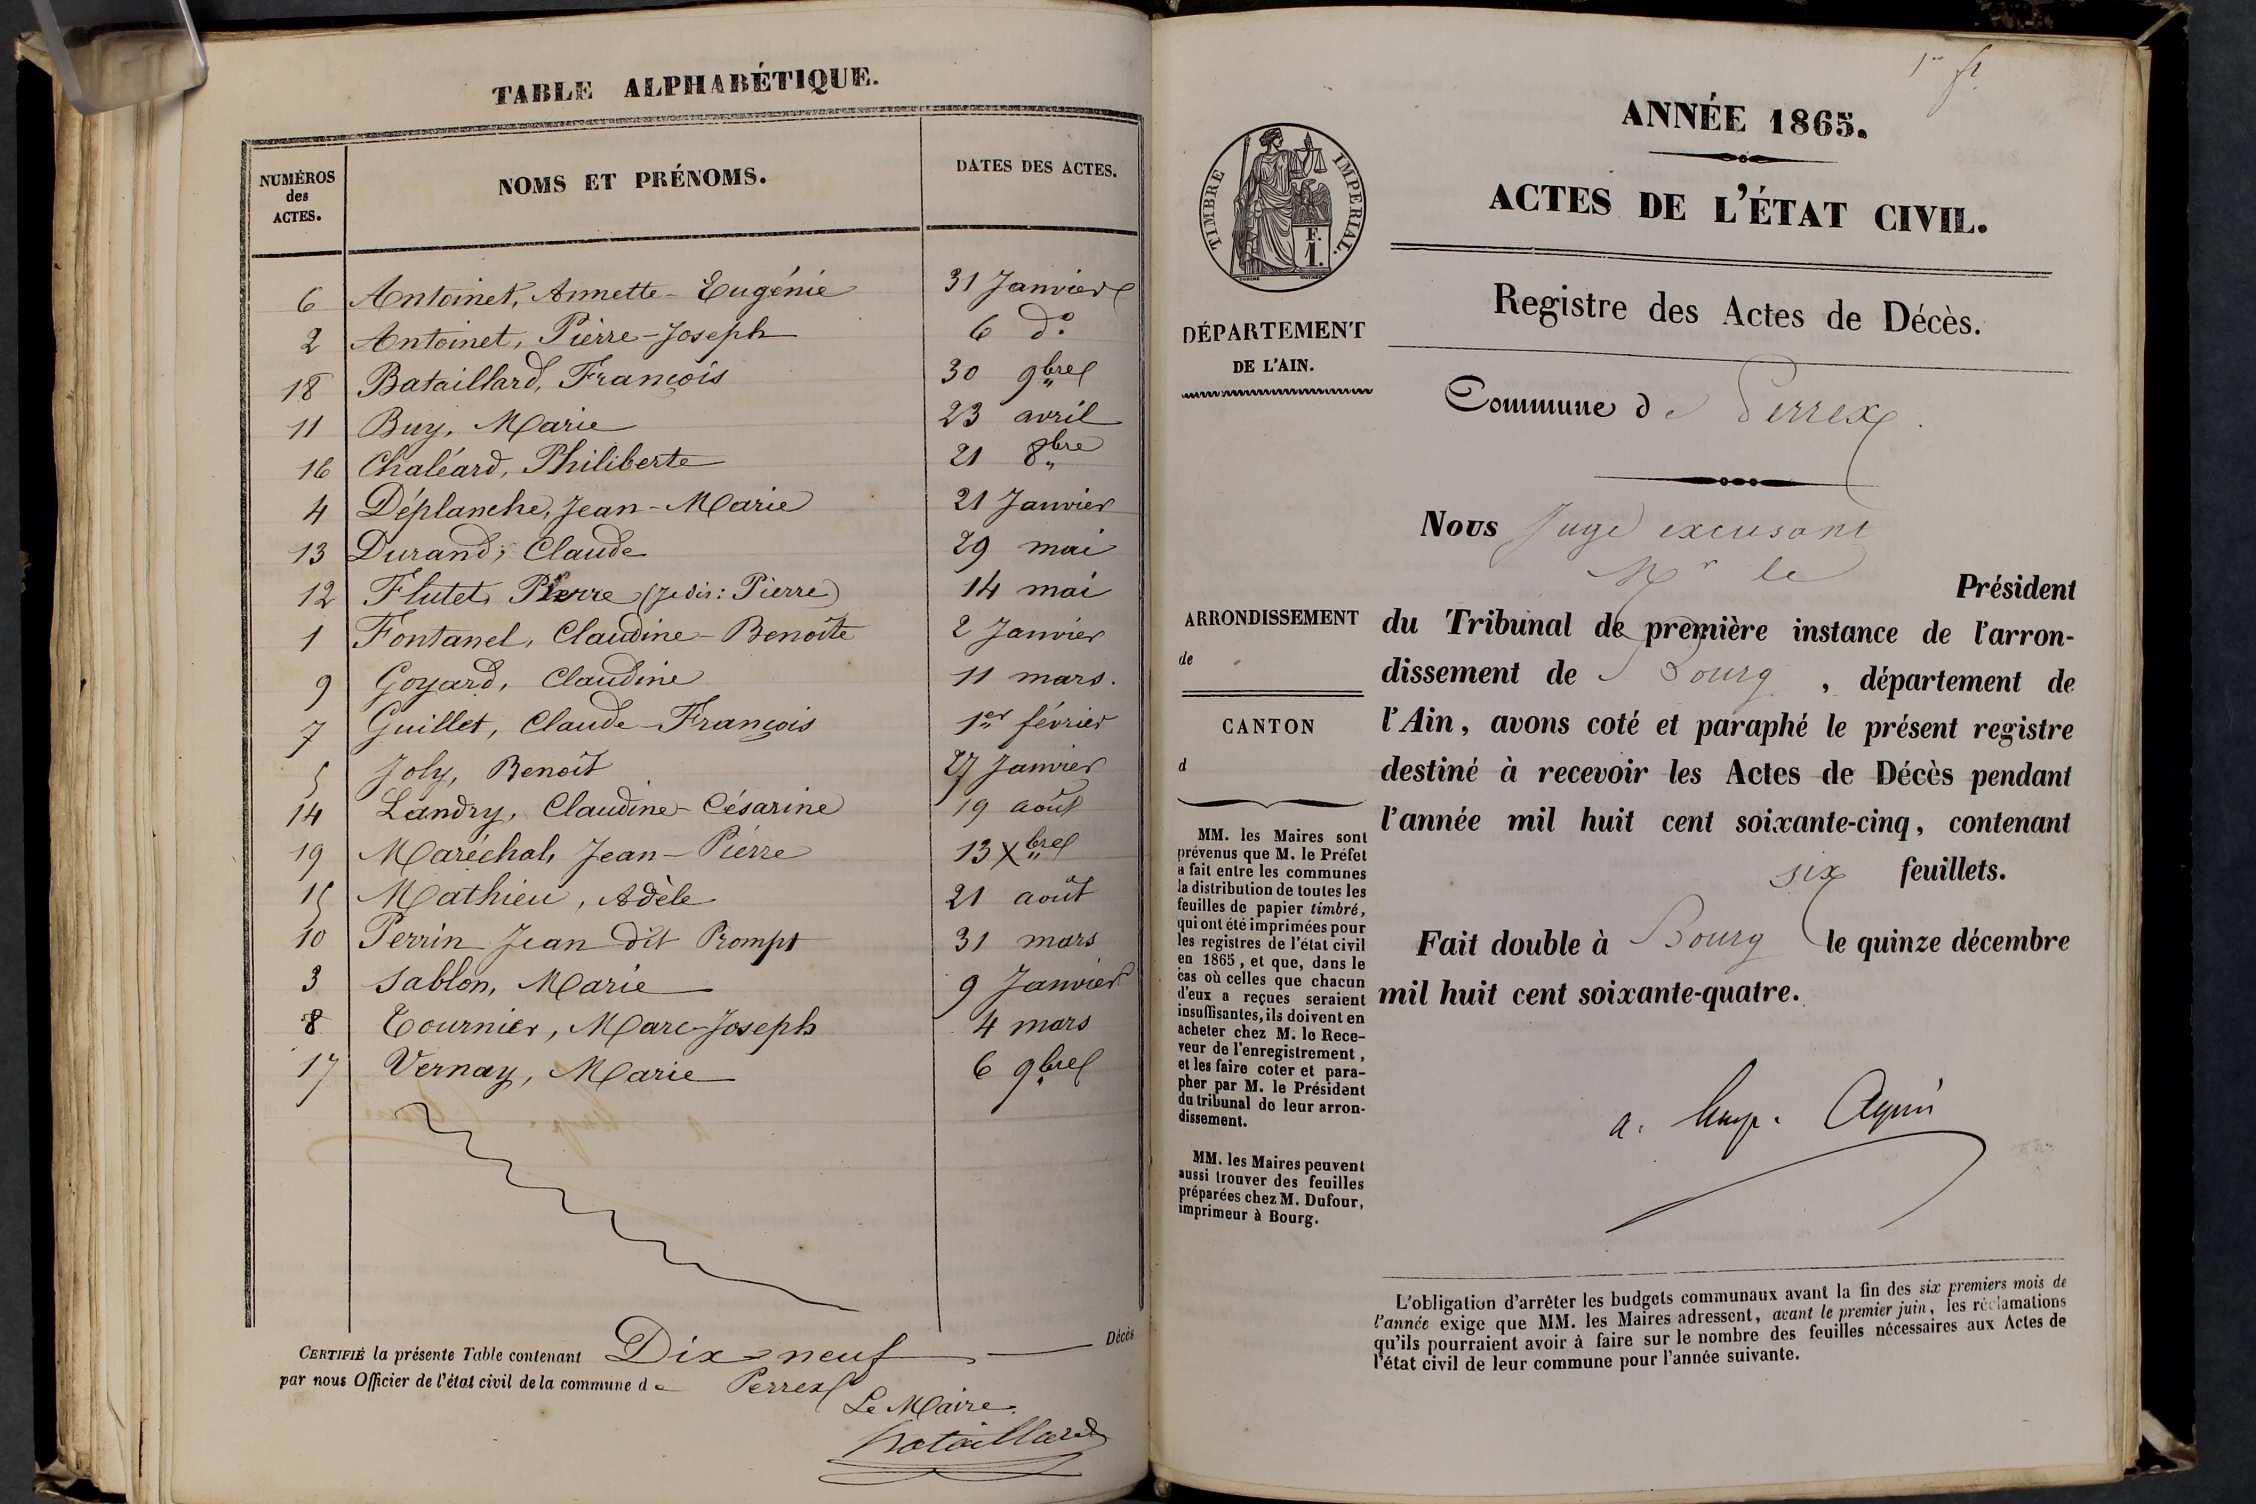 TABLE ALPHABÉTIQUE.
NUMÉROS des ACTES.
NOMS ET PRÉNOMS.
DATES DES ACTES.
6 Antoinet, Annette-Eugénie 31 Janvier
2 Antoinet, Pierre-Joseph 6 do.
18 Bataillard, François 30 9bre
11 Buy, Marie 23 avril
16 Chaléard, Philiberte 21 8bre
4 Déplanche, Jean-Marie 21 Janvier
13 Durand, Claude 29 mai
12 Flutet, Pierre (je dis: Pierre) 14 mai
1 Fontanel, Claudine-Benoîte 2 Janvier
9 Goyard, Claudine 11 mars.
7 Guillet, Claude-François 1er février
5 Joly, Benoît 27 Janvier
14 Landry, Claudine-Césarine 19 août
19 Maréchal, Jean-Pierre 13 Xbre
15 Mathieu, Adèle 21 août
10 Perrin Jean dit Prompt 31 mars
3 Sablon, Marie 9 Janvier
8 Tournier, Marc-Joseph 4 mars
17 Vernay, Marie 6 9bre
CERTIFIÉ la présente Table contenant Dix-neuf Décès
par nous Officier de l'état civil de la commune de Perrex
Le Maire.
Bataillard
ANNÉE 1865.
ACTES DE L'ÉTAT CIVIL.
TIMBRE IMPERIAL.
F.
1.
Registre des Actes de Décès.
DÉPARTEMENT
DE L'AIN.
Commune de Perrex.
Nous Juge excusant
Mr le
Président
ARRONDISSEMENT
de
CANTON
d
du Tribunal de première instance de l'arron-
dissement de Bourg, département de
l'Ain, avons coté et paraphé le présent registre
destiné à recevoir les Actes de Décès pendant
l'année mil huit cent soixante-cinq, contenant
six feuillets.
Fait double à Bourg le quinze décembre
mil huit cent soixante-quatre.
MM. les Maires sont
prévenus que M. le Préfet
a fait entre les communes
la distribution de toutes les
feuilles de papier timbré,
qui ont été imprimées pour
les registres de l'état civil
en 1865, et que, dans le
cas où celles que chacun
d'eux a reçues seraient
insuffisantes, ils doivent en
acheter chez M. le Rece-
veur de l'enregistrement,
et les faire coter et para-
pher par M. le Président
du tribunal de leur arron-
dissement.
MM. les Maires peuvent
aussi trouver des feuilles
préparées chez M. Dufour,
imprimeur à Bourg.
L'obligation d'arrêter les budgets communaux avant la fin des six premiers mois de
l'année exige que MM. les Maires adressent, avant le premier juin, les réclamations
qu'ils pourraient avoir à faire sur le nombre des feuilles nécessaires aux Actes de
l'état civil de leur commune pour l'année suivante.